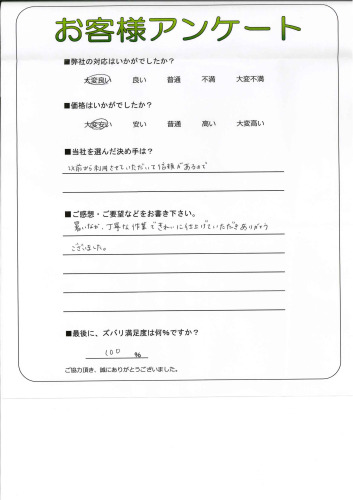 お客様アンケート
■弊社の対応はいかがでしたか?
大変良い 良い 普通 不満 大変不満
■価格はいかがでしたか?
大変安い 安い 普通 高い 大変高い
■当社を選んだ決め手は?
以前から利用させていただいて信頼があるので
■ご感想・ご要望などをお書き下さい。
暑いなか、丁寧な作業できれいに仕上げていただきありがとう
ございました。
■最後に、ズバリ満足度は何%ですか?
100 %
ご協力頂き、誠にありがとうございました。